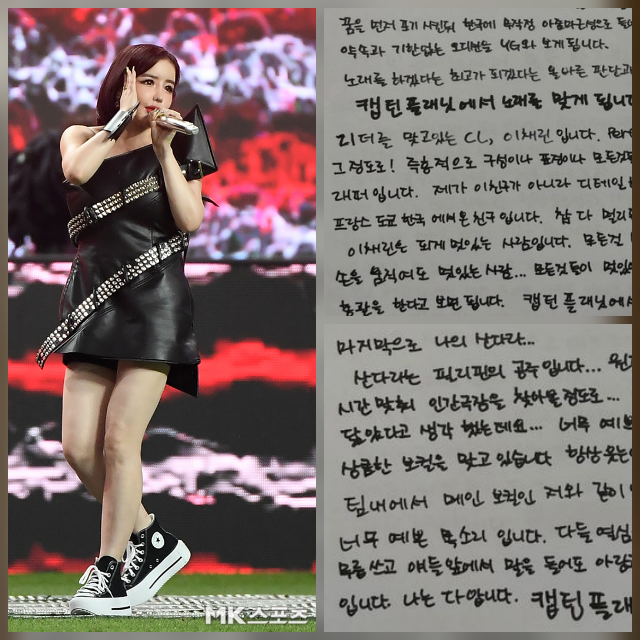 꿈을 먼저 포기 시킨뒤 한국에 무작정 아줌마근성으로
약속과 기한없는 오디션을 YG와 보게 됩니다.
노래를 하겠다는 최고가 되겠다는 올바른 판단과
캡틴플래닛에서 노래를 맞게 됩니다
리더를 맞고있는 CL, 이채린 입니다.
그정도로! 즉흥적으로 구성이나 표정이나 모든것
래퍼입니다. 제가 이친구가 아니라 디테일
프랑스 도쿄 한국 에서온 친구 입니다. 참 다
이채린은 되게 멋있는 사람입니다. 모든걸
손을 움직여도 멋있는사람... 모든것들이 멋있
총괄을 한다고 보면 됩니다. 캡틴플래닛에서
마지막으로 나의 산다라...
산다라는 필리핀의 공주 입니다...
시간 맞춰 인간극장을 찾아올정도로...
닮았다고 생각 했는데요... 너무 예쁘
상큼한 보컬을 맞고 있습니다 항상웃는
팀내에서 메인 보컬인 저와 같이
너무 예쁜 목소리 입니다. 다들 열심
무릅쓰고 얘들앞에서 말을 들어도
입니다. 나는 다압니다. 캡틴플래
MK스포츠